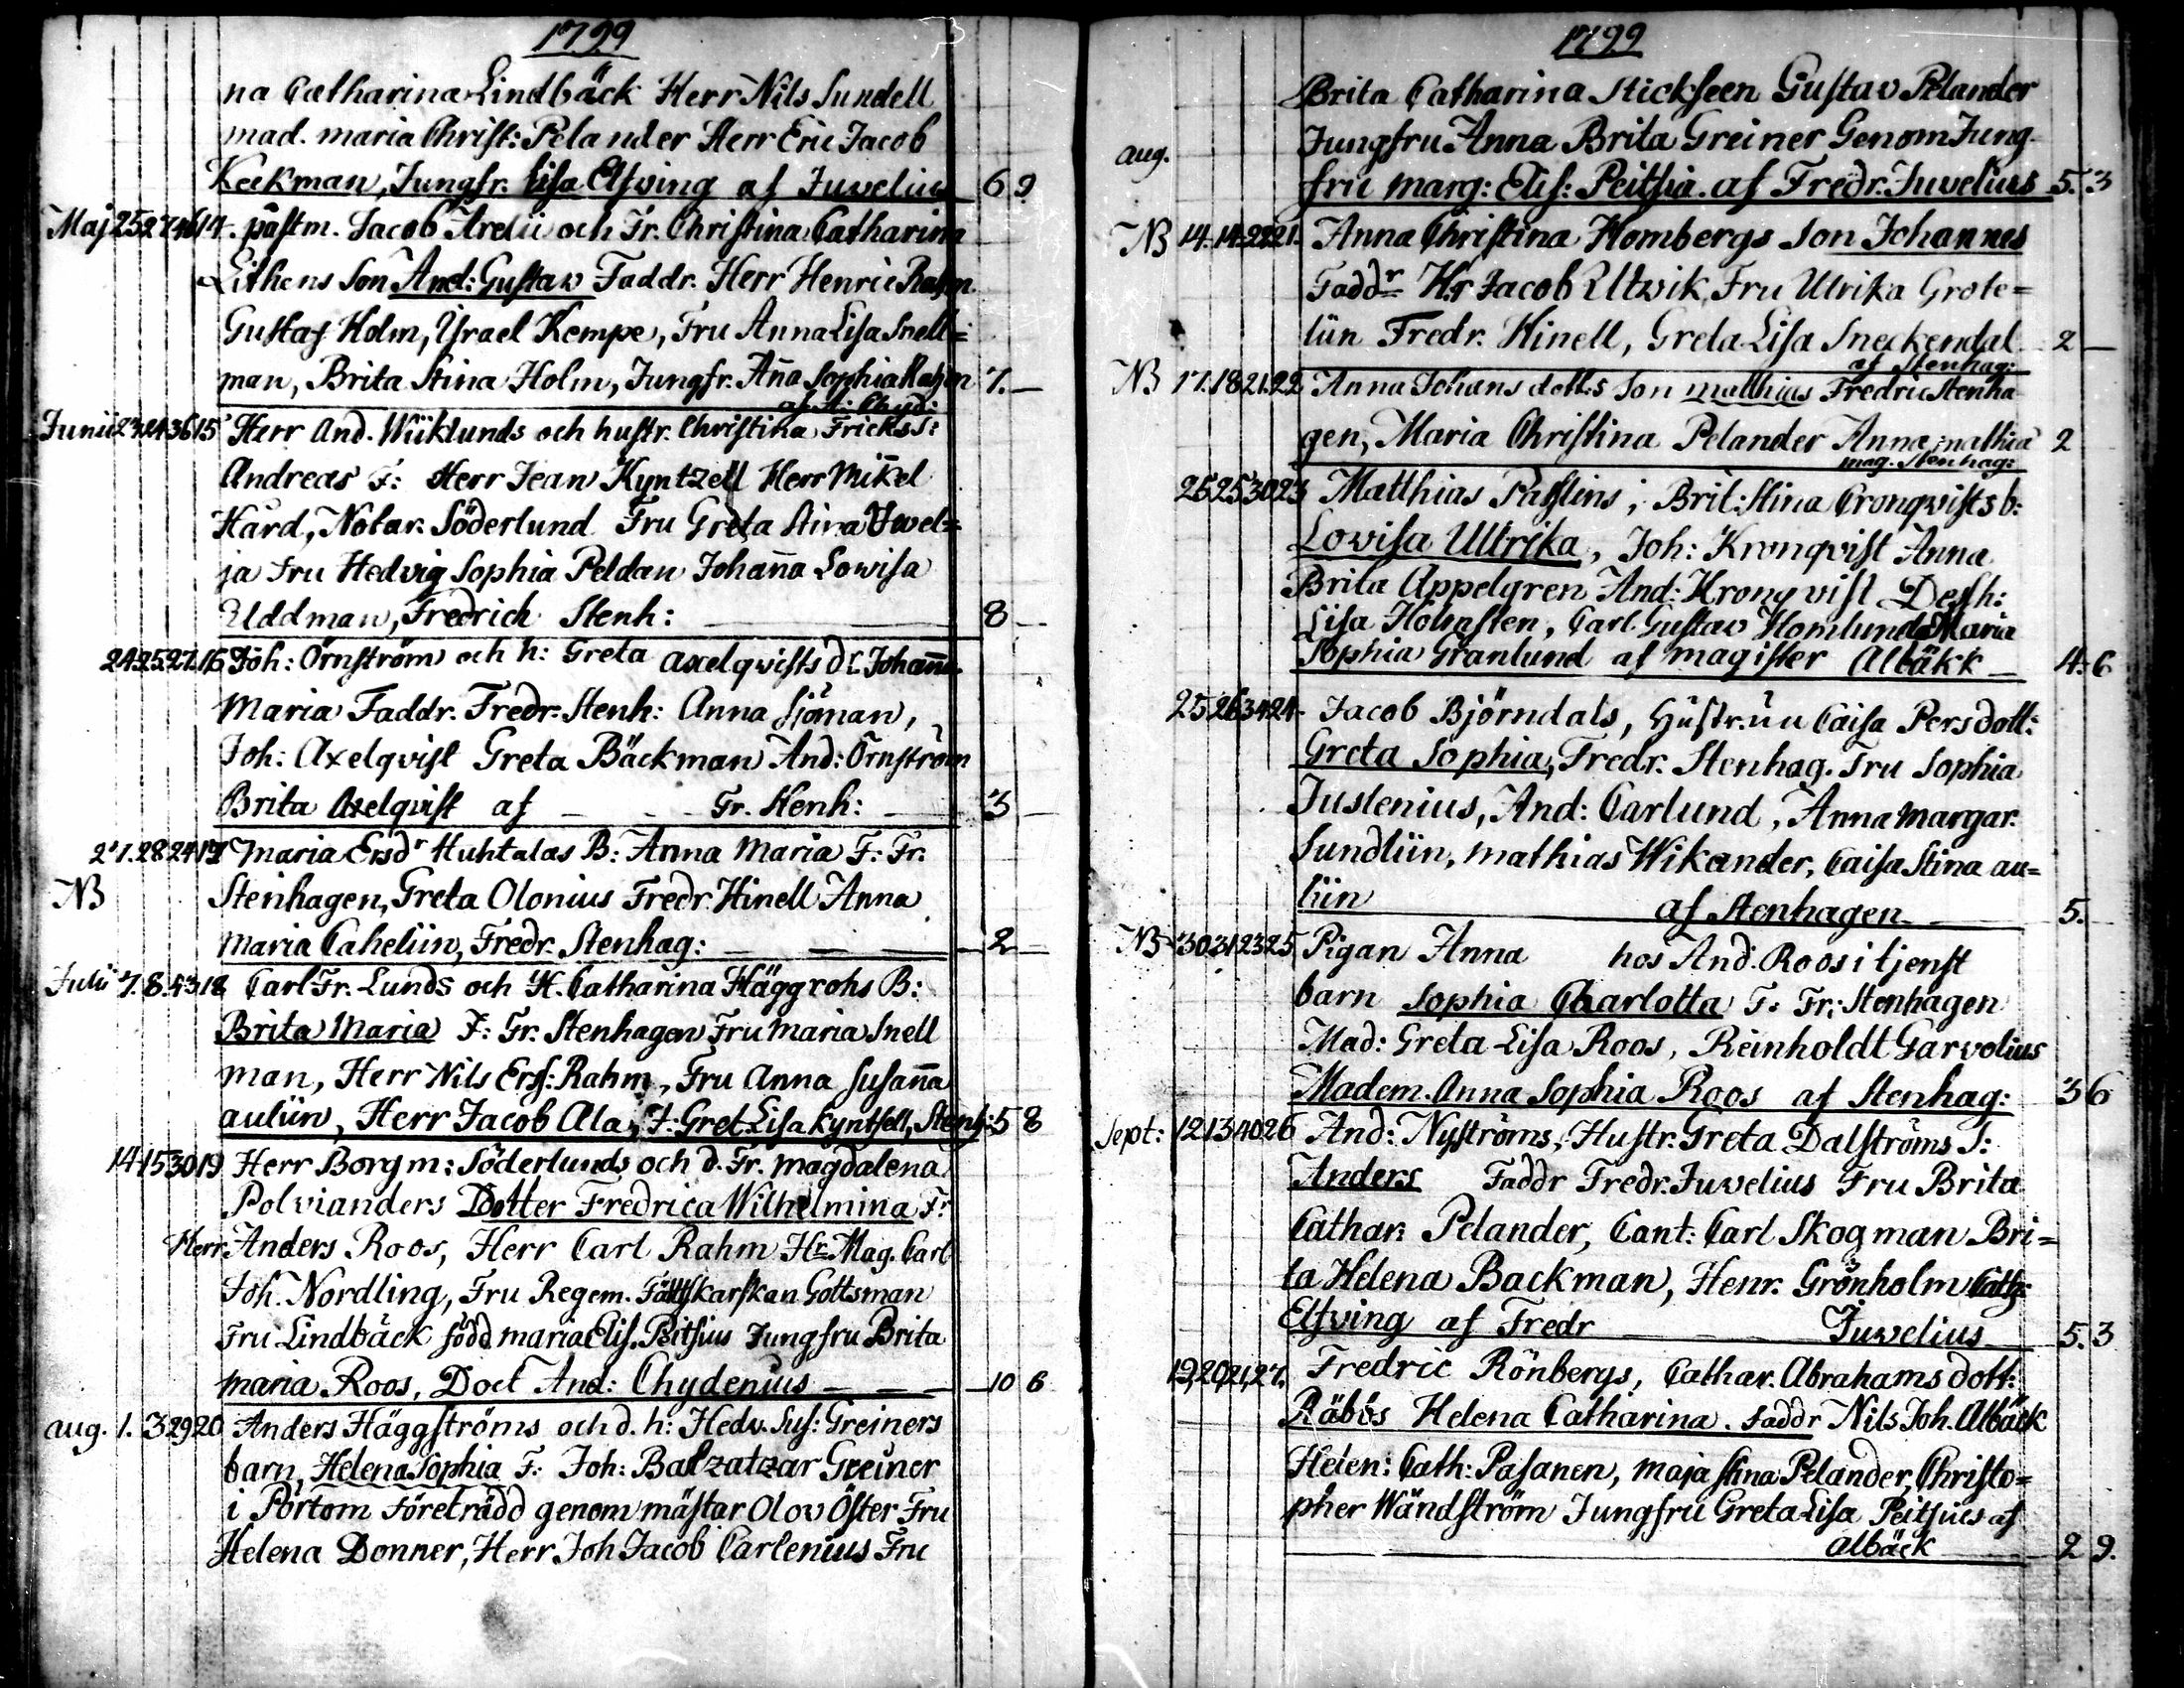 1799
na Catharina Lindbäck Herr Nils Sundell
mad. maria Christ: Pelander Herr Eric Jacob
Keckman, Jungfr. Lisa Elfving af Juvelius 6 9
Maj 25 27 46 14. påstm. Jacob Arelii och Fr. Christina Catharina
Lithens Son And: Gustav Faddr. Herr Henric Rahm
Gustaf Holm, Ysrael Kempe, Fru Anna Lisa Snell=
man, Brita Stina Holm, Jungfr. Aña Sophia Rahm 7. —
af A: Chyd:
Junii 23 24 36 15 Herr And. Wiiklunds och hustr. Christina Fricks S:
Andreas F: Herr Jean Kyntzell Herr Mikel
Hård, Notar. Söderlund Fru Greta Stina
ja Fru Hedvig Sophia Peldan Johaña Lowisa
Uddman, Fredrich Stenh: — 8 —
24 25 27 16 Joh: Örnström och h: Greta axelqvists d: Johaña
Maria Faddr. Fredr. Stenh: Anna Sjöman,
Joh: Axelqvist Greta Bäckman And: Örnström
Brita Axelqvist af — Fr. Stenh: — 3 —
27. 28 24 17 Maria Ersdr Huhtalas B: Anna Maria F: Fr.
NB Stenhagen, Greta Olonius Fredr. Hinell Anna
Maria Caheliin, Fredr. Stenhag: — 2 —
Julii 7. 8. 43 18 Carl Fr. Lunds och H. Catharina Häggrohs B:
Brita Maria F: Fr. Stenhagen Fru Maria Snell
man, Herr Nils Ers: Rahm, Fru Anna Susaña
auliin, Herr Jacob Ala, F: Gret. Lisa Kyntsell, Stenh: 5 8
14 15 30 19 Herr Borgm: Söderlunds och d. Fr. Magdalena
Polvianders Dotter Fredrica Wilhelmina F:
Herr Anders Roos, Herr Carl Rahm Hr Mag. Carl
Joh. Nordling, Fru Regem. Fältskärskan Gottsman
Fru Lindbäck född maria Elis. Peitsius Jungfru Brita
maria Roos, Doct And: Chydenius — 10 6
aug. 1. 3 29 20 Anders Häggströms och d. h: Hedv. Sus: Greiners
barn, Helena Sophia F: Joh: Baltzatzar Greiner
i Pörtom företrädd genom mästar Olov Öster Fru
Helena Donner, Herr Joh Jacob Carlenius Fru
1799
Brita Catharina Stickseen Gustav Pelander
Jungfru Anna Brita Greiner Genom Jung-
aug. fru marg: Elis: Peitsia. af Fredr. Juvelius 5. 3
NB 14. 14. 22 21. Anna Christina Hombergs Son Johannes
Faddr Hr Jacob Utwik, Fru Ulrika Grote=
liin Fredr. Hinell, Greta Lisa Sneckendal 2 —
af Stenhag:
NB 17. 18 21. 22 Anna Johans dotts Son matthias Fredric Stenha
gen, Maria Christina Pelander Anna mathia 2
mag. Stenhag:
25 25 30 23 Matthias Passlins, Brit: Stina Cronqvists b:
Lowisa Ullrika, Joh: Kronqvist Anna
Brita Appelgren And: Kronqvist Desh:
Lisa Holmsten, Carl Gustav Homlund Maria
Sophia Granlund af magister Albäkk — 4. 6
25 26 34 24 Jacob Björndals, hustr. Caisa Persdott:
Greta Sophia, Fredr. Stenhag. Fru Sophia
Justenius, And: Carlund, Anna Margar.
Sundliin, mathias Wikander, Caisa Stina au=
liin af Stenhagen — 5.
NB 30 31 23 25 Pigan Anna hos And. Roos i tjenst
barn Sophia Charlotta F. Fr: Stenhagen
Mad: Greta Lisa Roos, Reinholdt Garvolius
Madem. Anna Sophia Roos af Stenhag: 3 6
Sept: 12 13 40 26 And: Nyströms, Hustr. Greta Dalströms S:
Anders Faddr Fredr. Juvelius Fru Brita
Cathar: Pelander, Cant: Carl Skogman Bri=
ta Helena Backman, Henr. Grönholm Cath:
Elfving af Fredr — Juvelius — 5. 3
19, 20, 21, 27. Fredric Rönbergs, Cathar. Abrahams dott:
Räbös Helena Catharina. faddr Nils Joh. Albäck
Helen: Cath: Pasanen, maja Stina Pelander, Christo=
pher Wändström Jungfru Greta Lisa Peitsius af
albäck — 2 9.